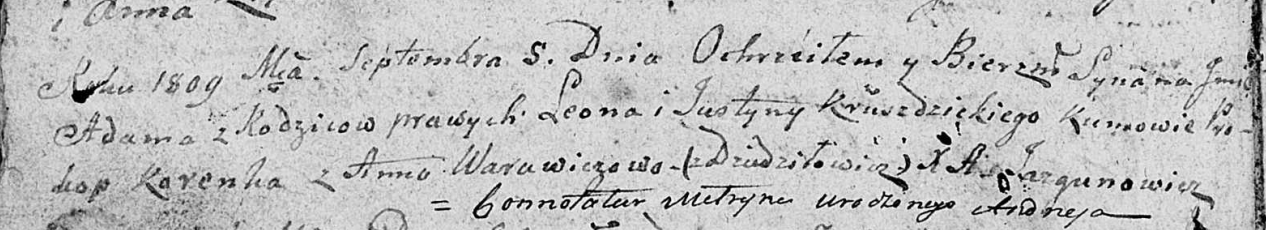 i Anna
Roku 1809 Mca. Septembra 5. Dnia Ochrzciłem y Bierzm Syna na Jmie
Adama z Rodzicow prawych Leona i Justyny Kruszdzickiego Kumowie Pro-
kop Korenka z Anno Warawiczowo (z Dziudziłowicz) X A. Jazgunowicz
= Connotatur Metryna urodzonego Andreja